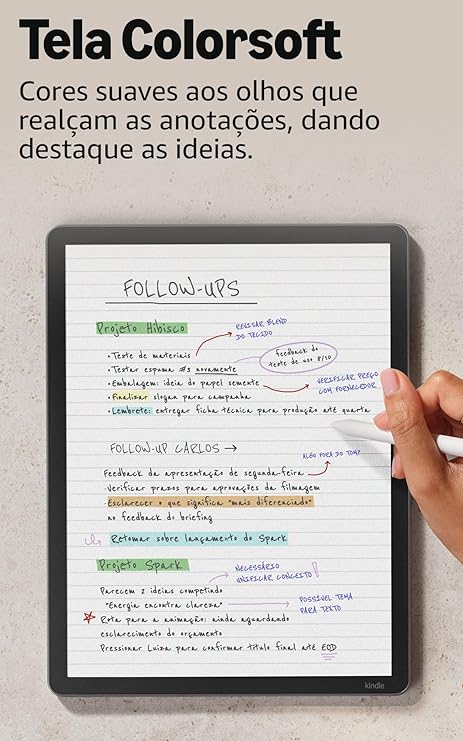 Tela Colorsoft
Cores suaves aos olhos que
realçam as anotações, dando
destaque as ideias.
FOLLOW-UPS
Projeto Hibisco
REVISAR BLEND
DO TECIDO
• Teste de materiais
feedback do
teste de uso 8/10
• Testar espuma #3 novamente
• Embalagem: ideia do papel semente
VERIFICAR PREÇO
COM FORNECEDOR
• Finalizar slogan para campanha
• Lembrete: entregar ficha técnica para produção até quarta
FOLLOW-UP CARLOS →
ALGO FORA DO TOM?
Feedback da apresentação de segunda-feira
• Verificar prazos para aprovações da filmagem
Esclarecer o que significa "mais diferenciado"
no feedback do briefing
Retomar sobre lançamento do Spark
Projeto Spark
NECESSÁRIO
UNIFICAR CONCEITO!
Parecem 2 ideias competindo
"Energia encontra clareza"
POSSÍVEL TEMA
PARA TEXTO
Rota para a animação: ainda aguardando
esclarecimento do orçamento
Pressionar Luiza para confirmar título final até EOD
kindle